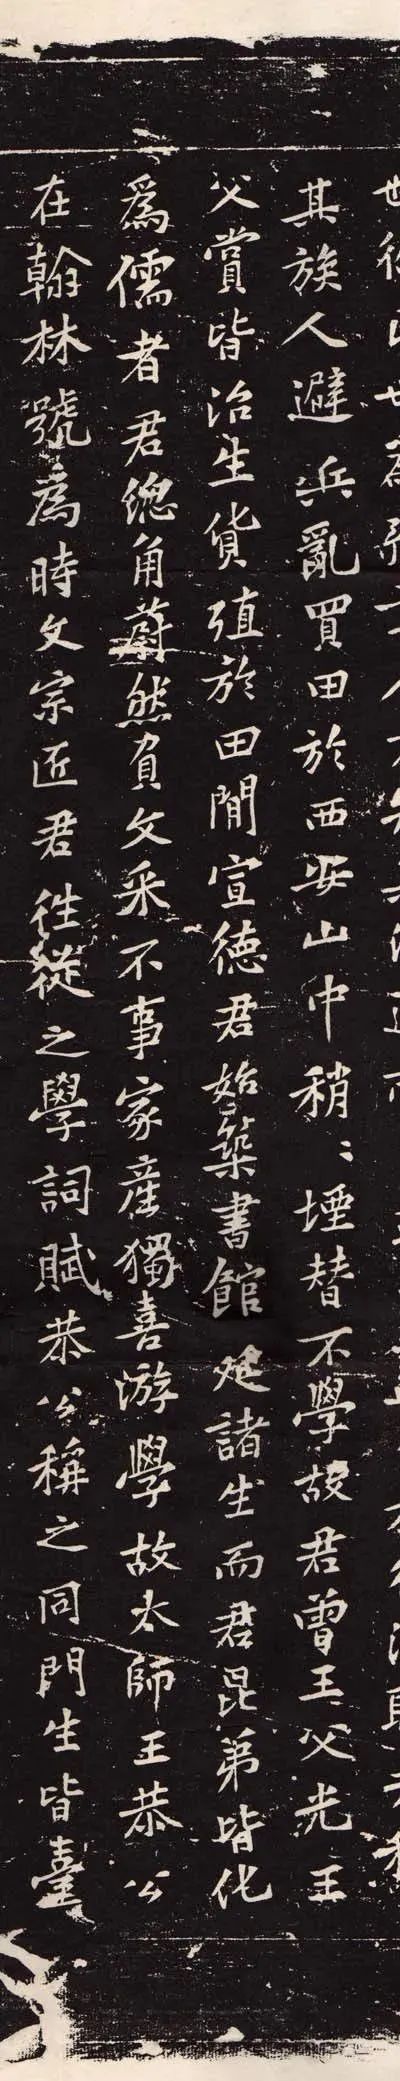 其族人避兵亂買田於西安山中稍〻堙替不學故君曾王父光王
父賞皆治生貨殖於田閒宣德君始築書館延諸生而君昆弟皆化
為儒者君總角蔚然負文采不事家產獨喜游學故太師王恭公
在翰林號為時文宗匠君往從之學詞賦恭公稱之同門生皆臺